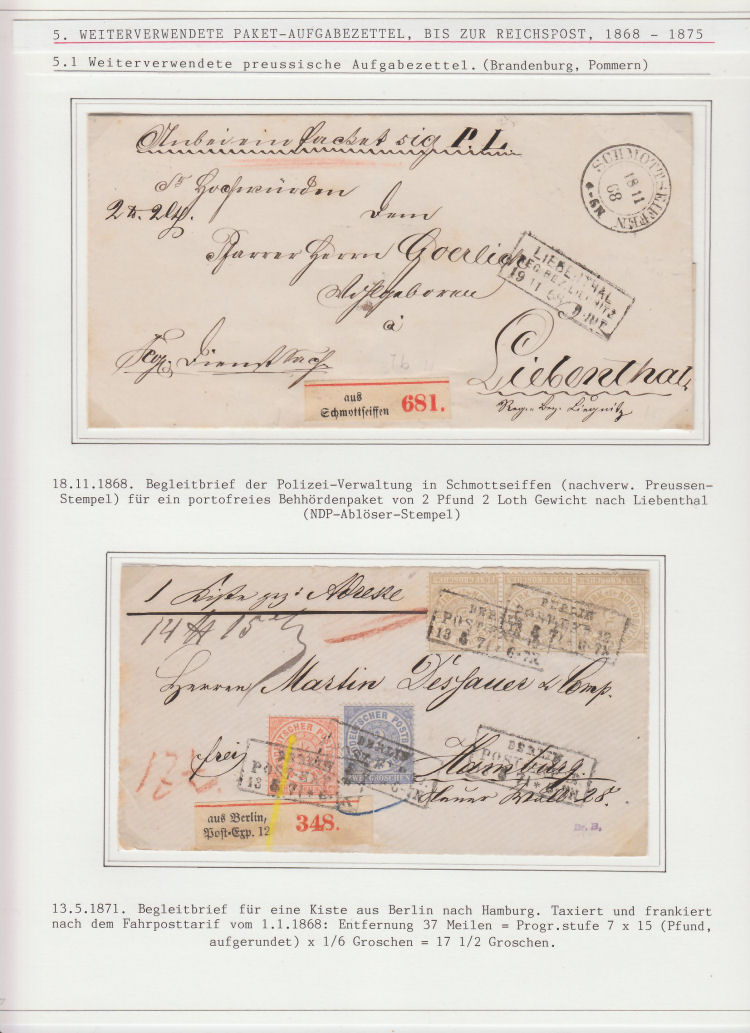 5. WEITERVERWENDETE PAKET-AUFGABEZETTEL, BIS ZUR REICHSPOST, 1868 - 1875
5.1 Weiterverwendete preussische Aufgabezettel. (Brandenburg, Pommern)
Anbei ein Packet sig P.L.
SCHMOTTSEIFFEN
18 11
68
4-6N
Sr Hochwürden
dem
Pfarrer Herrn Goerlich
Wohlgeboren
à
LIEBENTHAL
REG. BEZ. LIEGNITZ
19 11 68
Dienstsach
Liebenthal
Reg. Bez. Liegnitz
aus
Schmottseiffen 681.
18.11.1868. Begleitbrief der Polizei-Verwaltung in Schmottseiffen (nachverw. Preussen-
Stempel) für ein portofreies Behhördenpaket von 2 Pfund 2 Loth Gewicht nach Liebenthal
(NDP-Ablöser-Stempel)
1 Kiste gez: Adresse
BERLIN
POST-EX 12
13 5 71 6-7N
Herren Martin Dessauer & Comp.
frei
Hamburg
Neuer Wall 28.
DEUTSCHER POST
ZWEI GROSCHEN
BERLIN
aus Berlin,
Post-Exp. 12 348.
13.5.1871. Begleitbrief für eine Kiste aus Berlin nach Hamburg. Taxiert und frankiert
nach dem Fahrposttarif vom 1.1.1868: Entfernung 37 Meilen = Progr.stufe 7 x 15 (Pfund,
aufgerundet) x 1/6 Groschen = 17 1/2 Groschen.